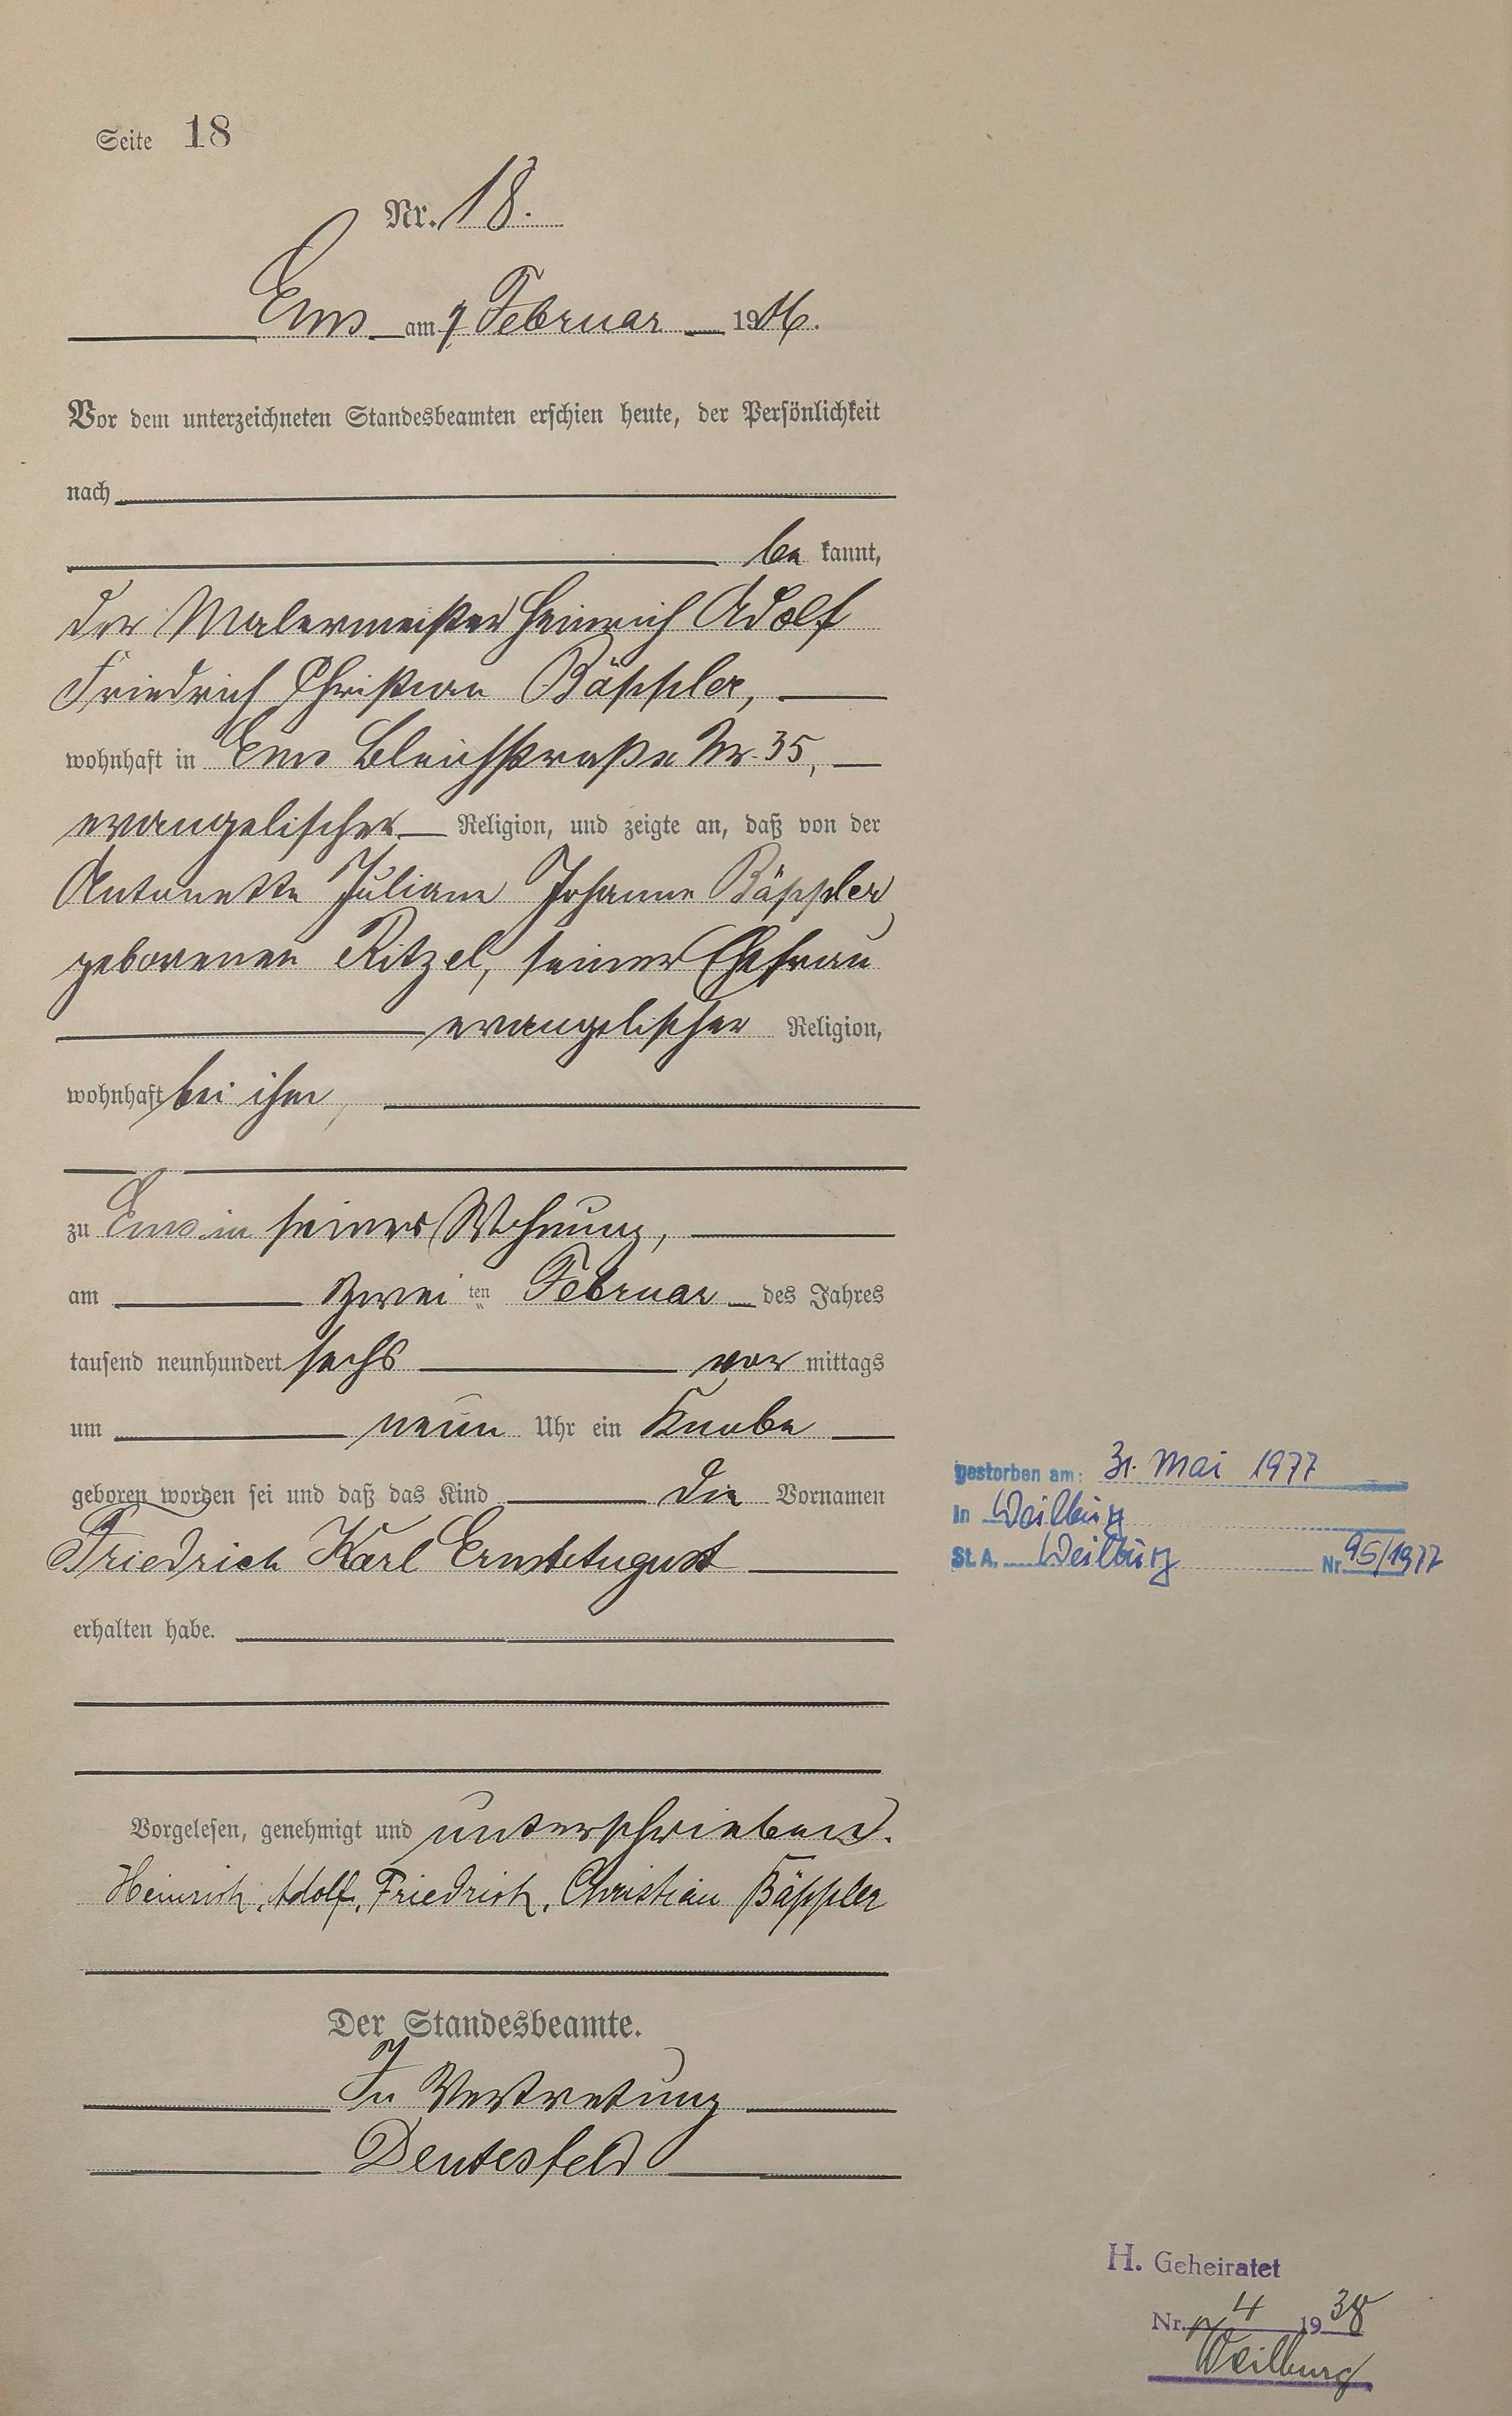 Seite 18
Nr. 18.
Ems am 7 Februar 1906.
Vor dem unterzeichneten Standesbeamten erschien heute, der Persönlichkeit
nach
be kannt,
der Malermeister Heinrich Adolf
Friedrich Christian Bäppler,
wohnhaft in Ems Bleichstraße Nr. 35,
evangelischer Religion, und zeigte an, daß von der
Antonette Juliane Johanne Bäppler
geborenen Ritzel, seiner Ehefrau
evangelischer Religion,
wohnhaft bei ihm,
zu Ems in seiner Wohnung,
am zwei ten Februar des Jahres
tausend neunhundert sechs vor mittags
um neun Uhr ein Knabe
geboren worden sei und daß das Kind die Vornamen
Friedrich Karl Ernst August
erhalten habe.
Vorgelesen, genehmigt und unterschrieben.
Heinrich, Adolf, Friedrich, Christian Bäppler
Der Standesbeamte.
In Vertretung
Deutesfeld
gestorben am: 31. Mai 1977
in Weilburg
St. A. Weilburg Nr. 95/1977
H. Geheiratet
Nr. 4 1938
Weilburg